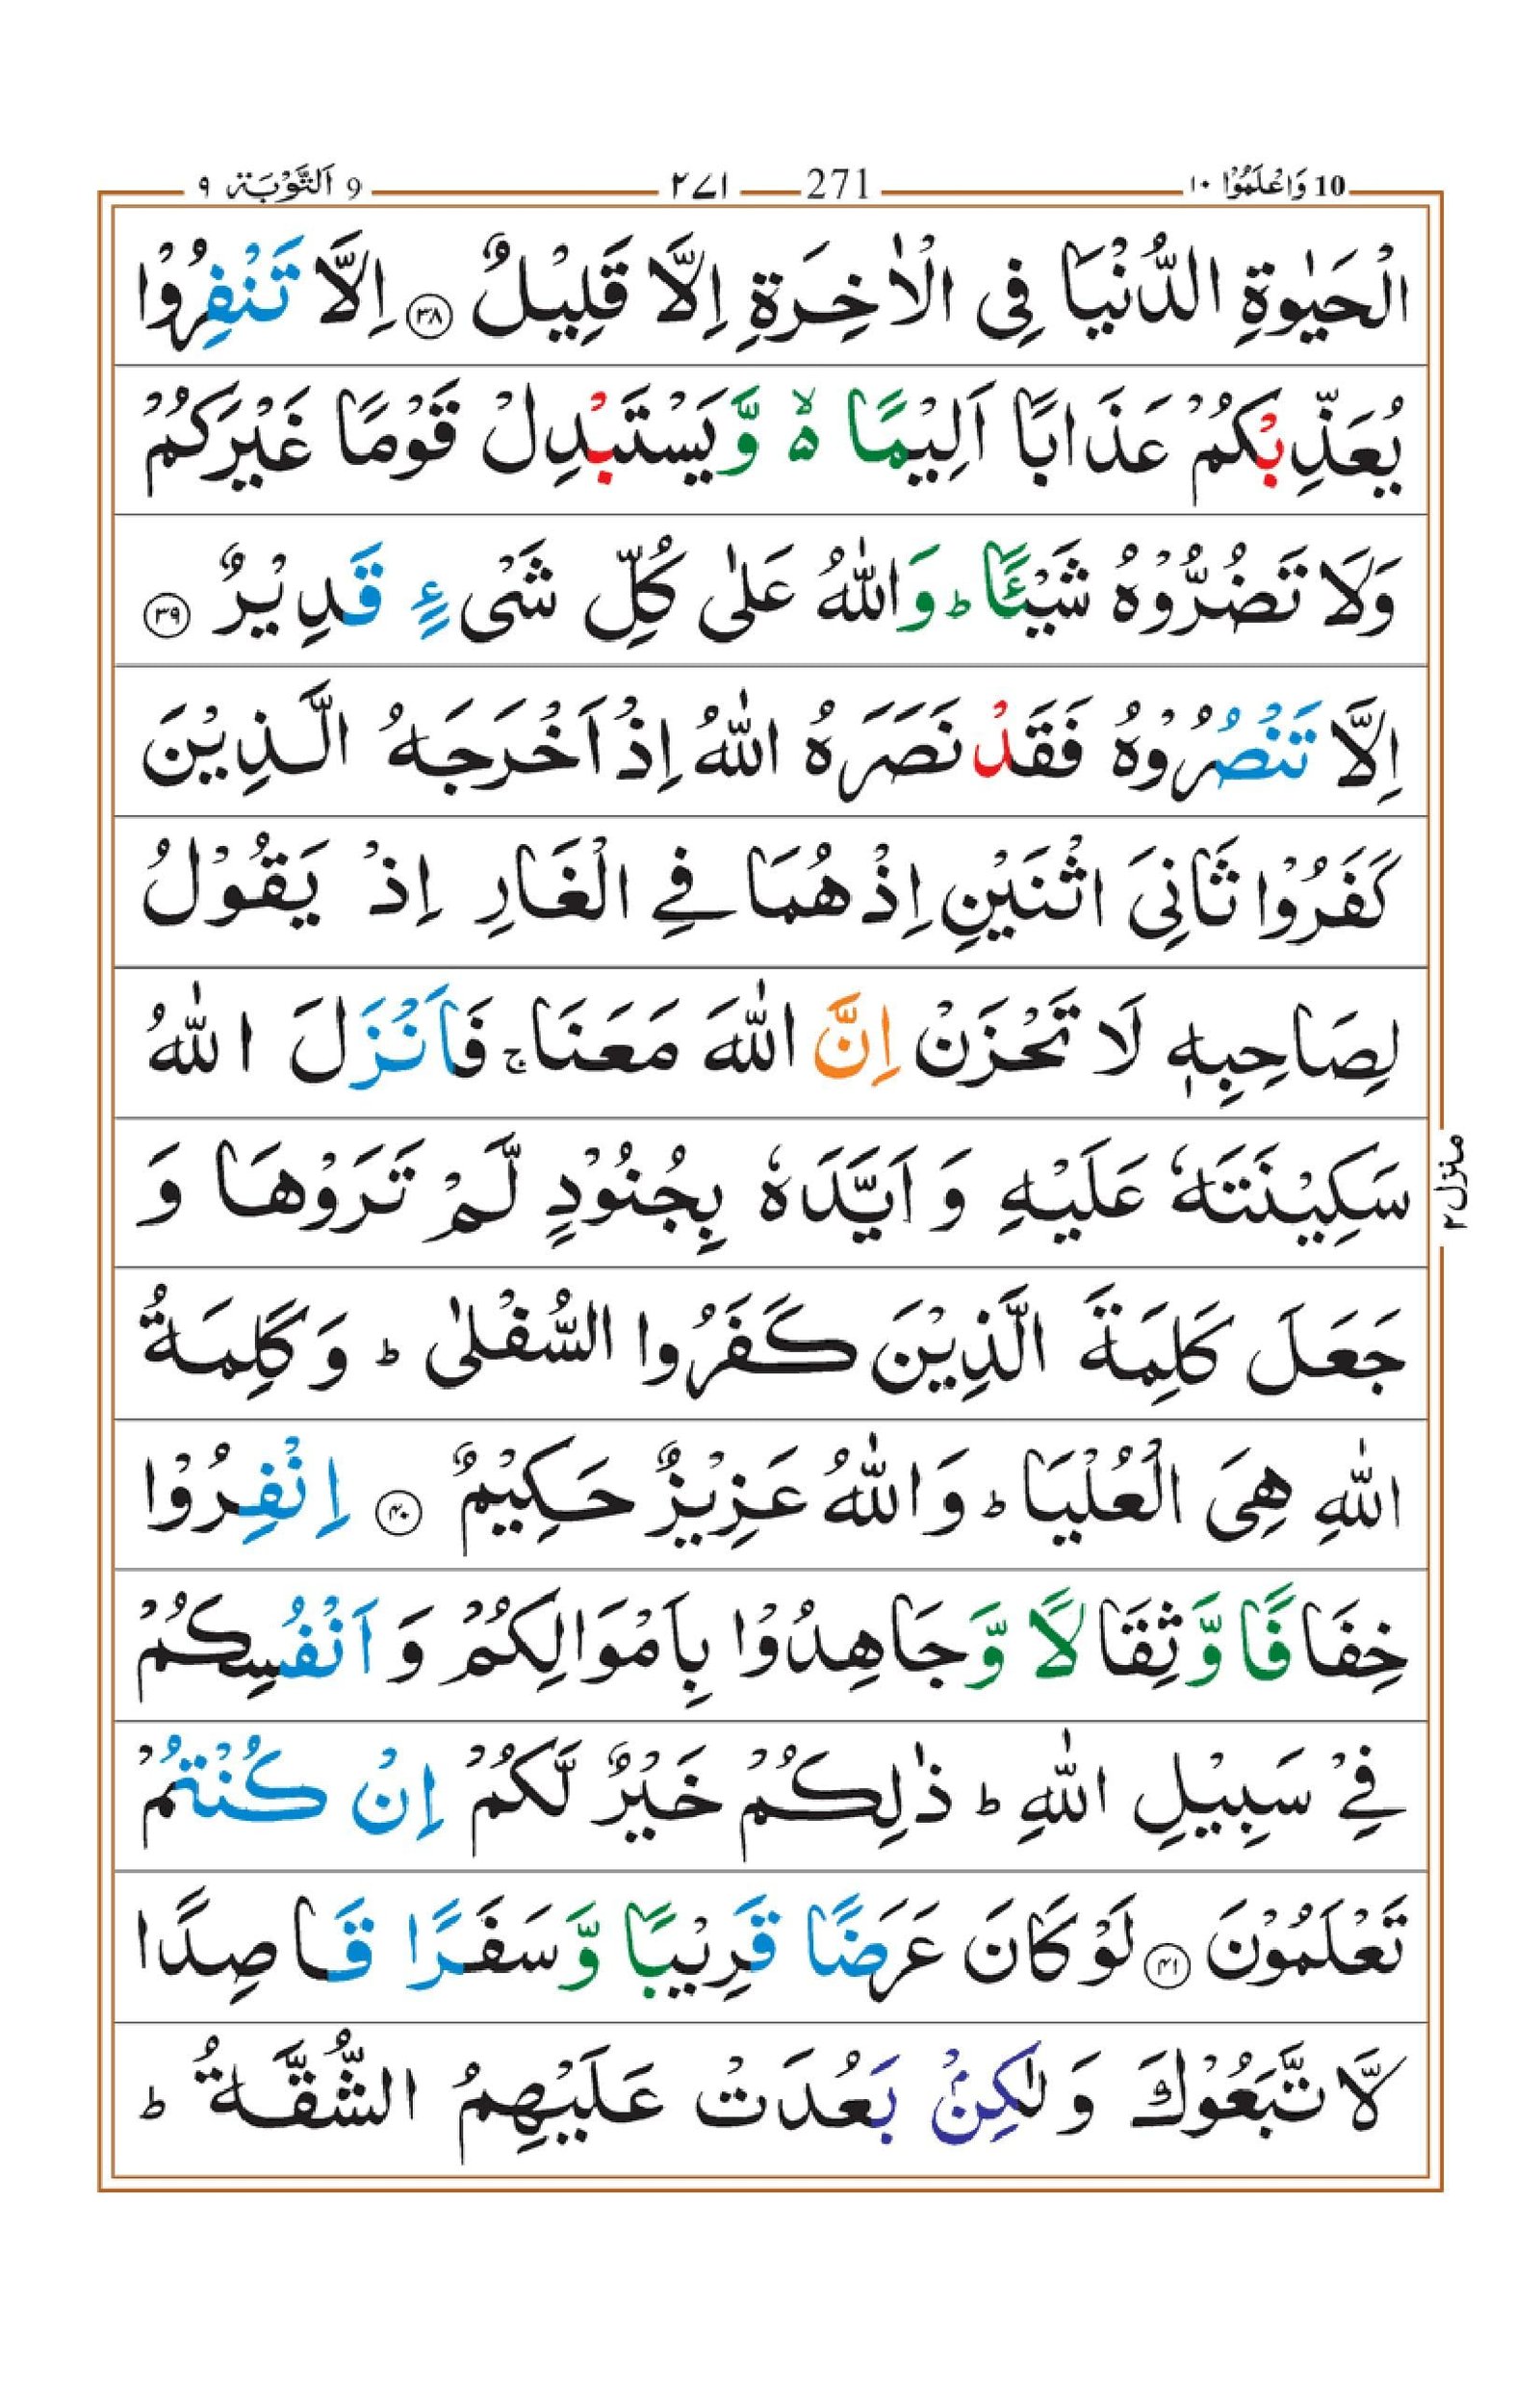 10 وَاعْلَمُوْۤا ۱۰ 271 ۲۷۱ 9 اَلتَّوْبَة ۹
الْحَيٰوةِ الدُّنْيَا فِى الْاٰخِرَةِ اِلَّا قَلِيْلٌ ۳۸ اِلَّا تَنْفِرُوْا
يُعَذِّبْكُمْ عَذَابًا اَلِيْمًا ۙ۬ وَّيَسْتَبْدِلْ قَوْمًا غَيْرَكُمْ
وَلَا تَضُرُّوْهُ شَيْـًٔا ؕ وَاللّٰهُ عَلٰى كُلِّ شَىْءٍ قَدِيْرٌ ۳۹
اِلَّا تَنْصُرُوْهُ فَقَدْ نَصَرَهُ اللّٰهُ اِذْ اَخْرَجَهُ الَّذِيْنَ
كَفَرُوْا ثَانِىَ اثْنَيْنِ اِذْ هُمَا فِى الْغَارِ اِذْ يَقُوْلُ
لِصَاحِبِهٖ لَا تَحْزَنْ اِنَّ اللّٰهَ مَعَنَا ۚ فَاَنْزَلَ اللّٰهُ
سَكِيْنَتَهٗ عَلَيْهِ وَ اَيَّدَهٗ بِجُنُوْدٍ لَّمْ تَرَوْهَا وَ
جَعَلَ كَلِمَةَ الَّذِيْنَ كَفَرُوا السُّفْلٰى ؕ وَكَلِمَةُ
اللّٰهِ هِىَ الْعُلْيَا ؕ وَاللّٰهُ عَزِيْزٌ حَكِيْمٌ ۴۰ اِنْفِرُوْا
خِفَافًا وَّثِقَالًا وَّجَاهِدُوْا بِاَمْوَالِكُمْ وَ اَنْفُسِكُمْ
فِىْ سَبِيْلِ اللّٰهِ ؕ ذٰلِكُمْ خَيْرٌ لَّكُمْ اِنْ كُنْتُمْ
تَعْلَمُوْنَ ۴۱ لَوْ كَانَ عَرَضًا قَرِيْبًا وَّسَفَرًا قَاصِدًا
لَّاتَّبَعُوْكَ وَلٰكِنْۢ بَعُدَتْ عَلَيْهِمُ الشُّقَّةُ ؕ
منزل۲